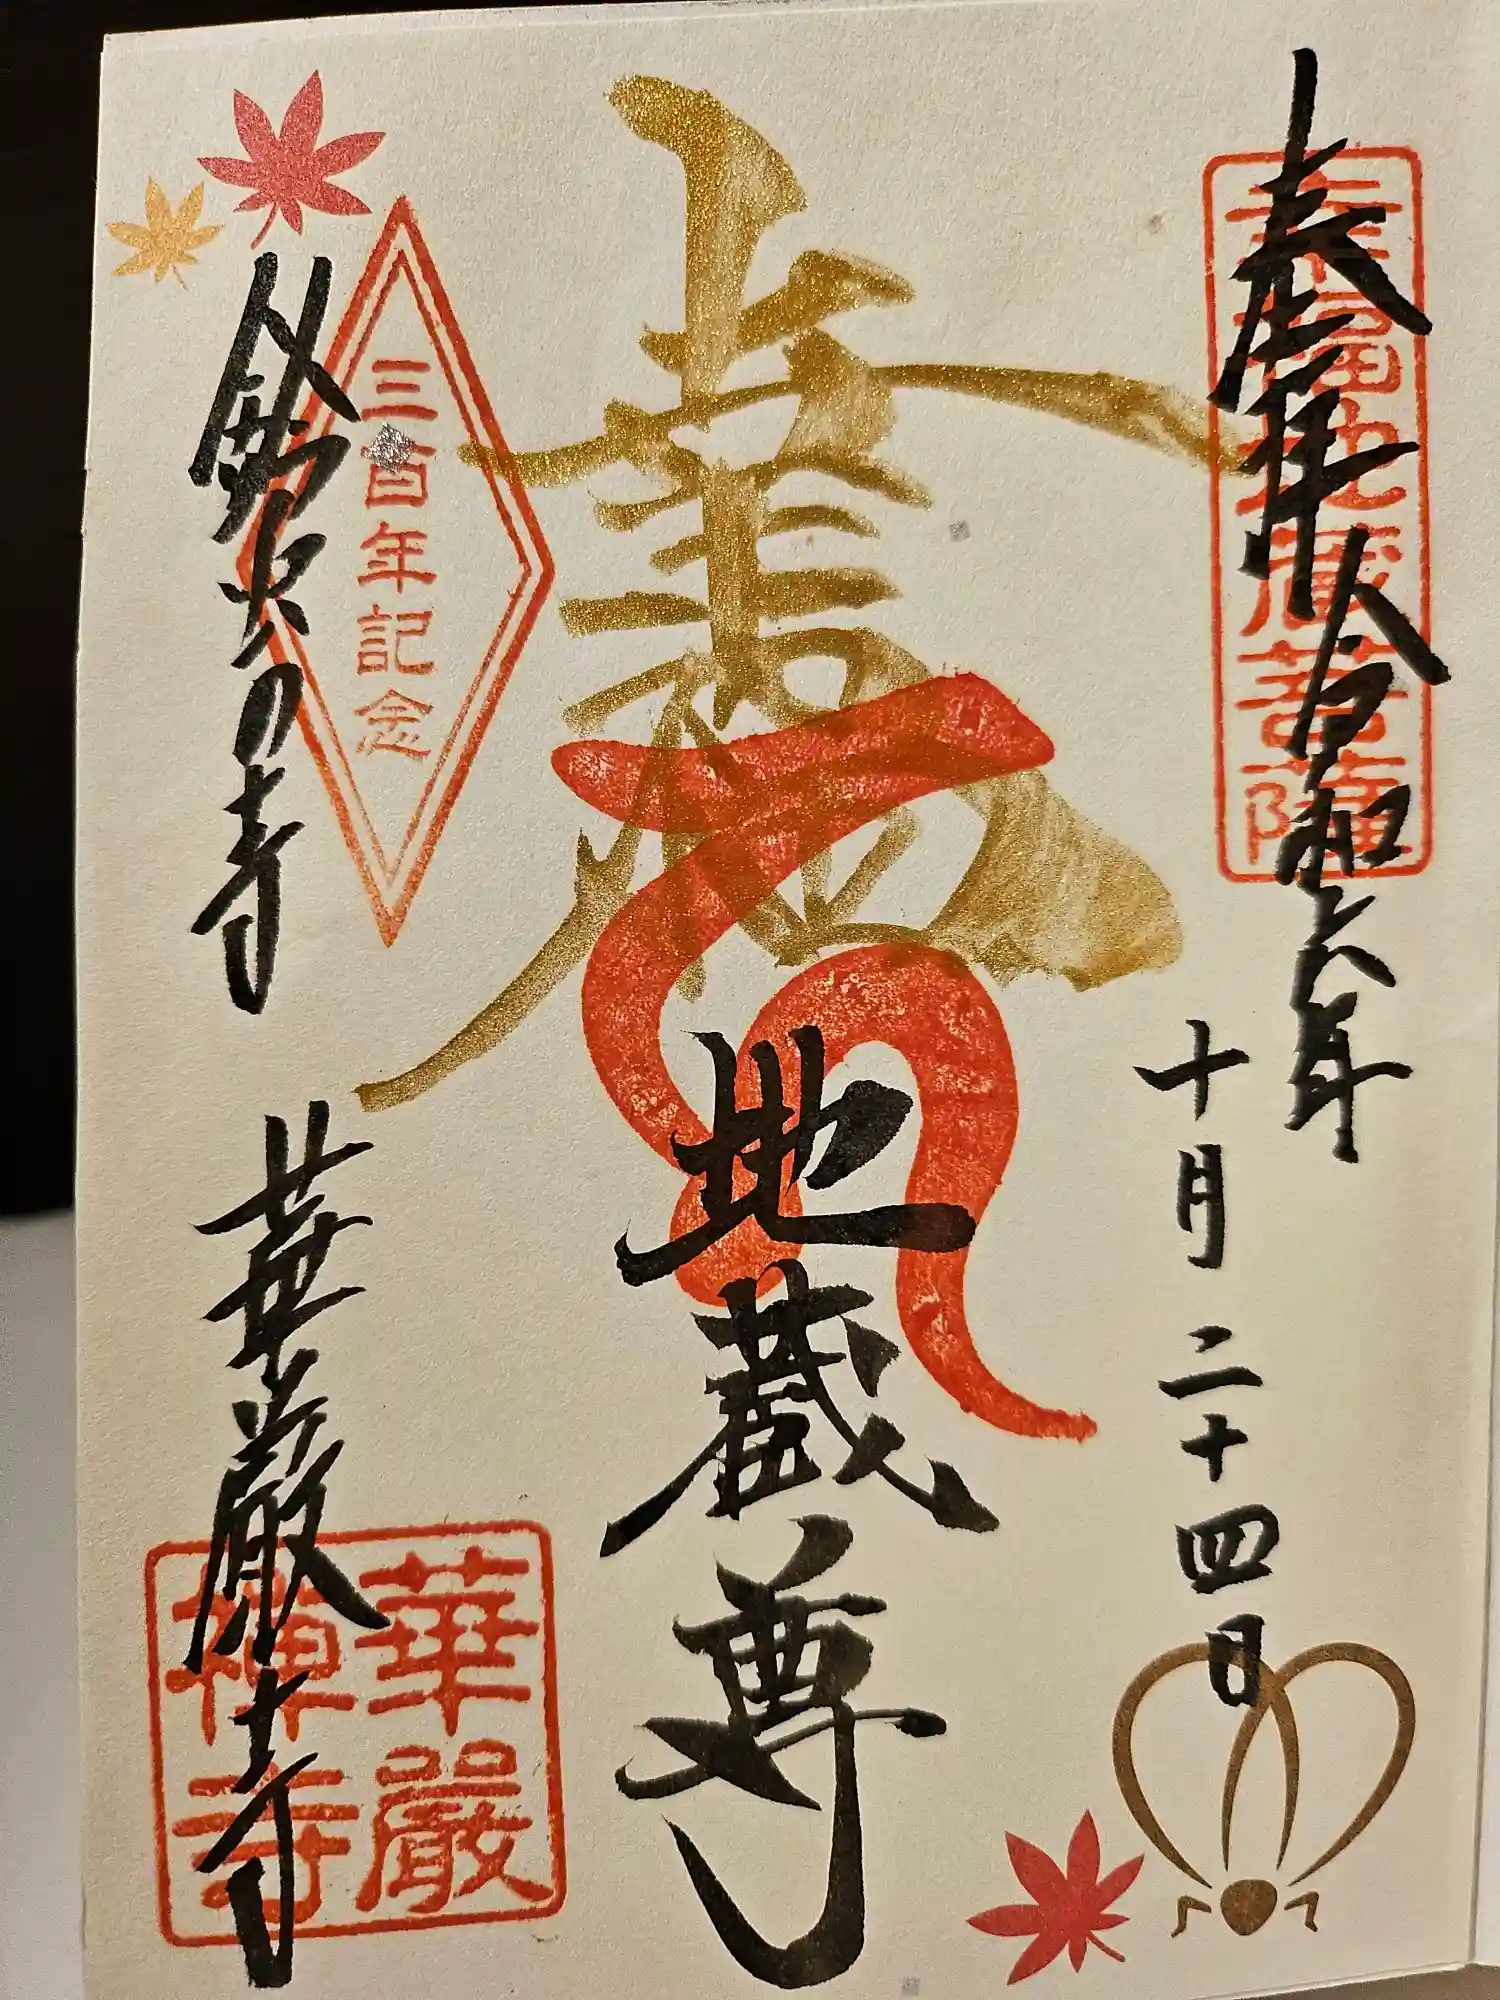 奉拝 令和六年
幸福地蔵菩薩
十月二十四日
幸福
地蔵尊
三百年記念
鈴虫の寺
華厳寺
華嚴
禅寺